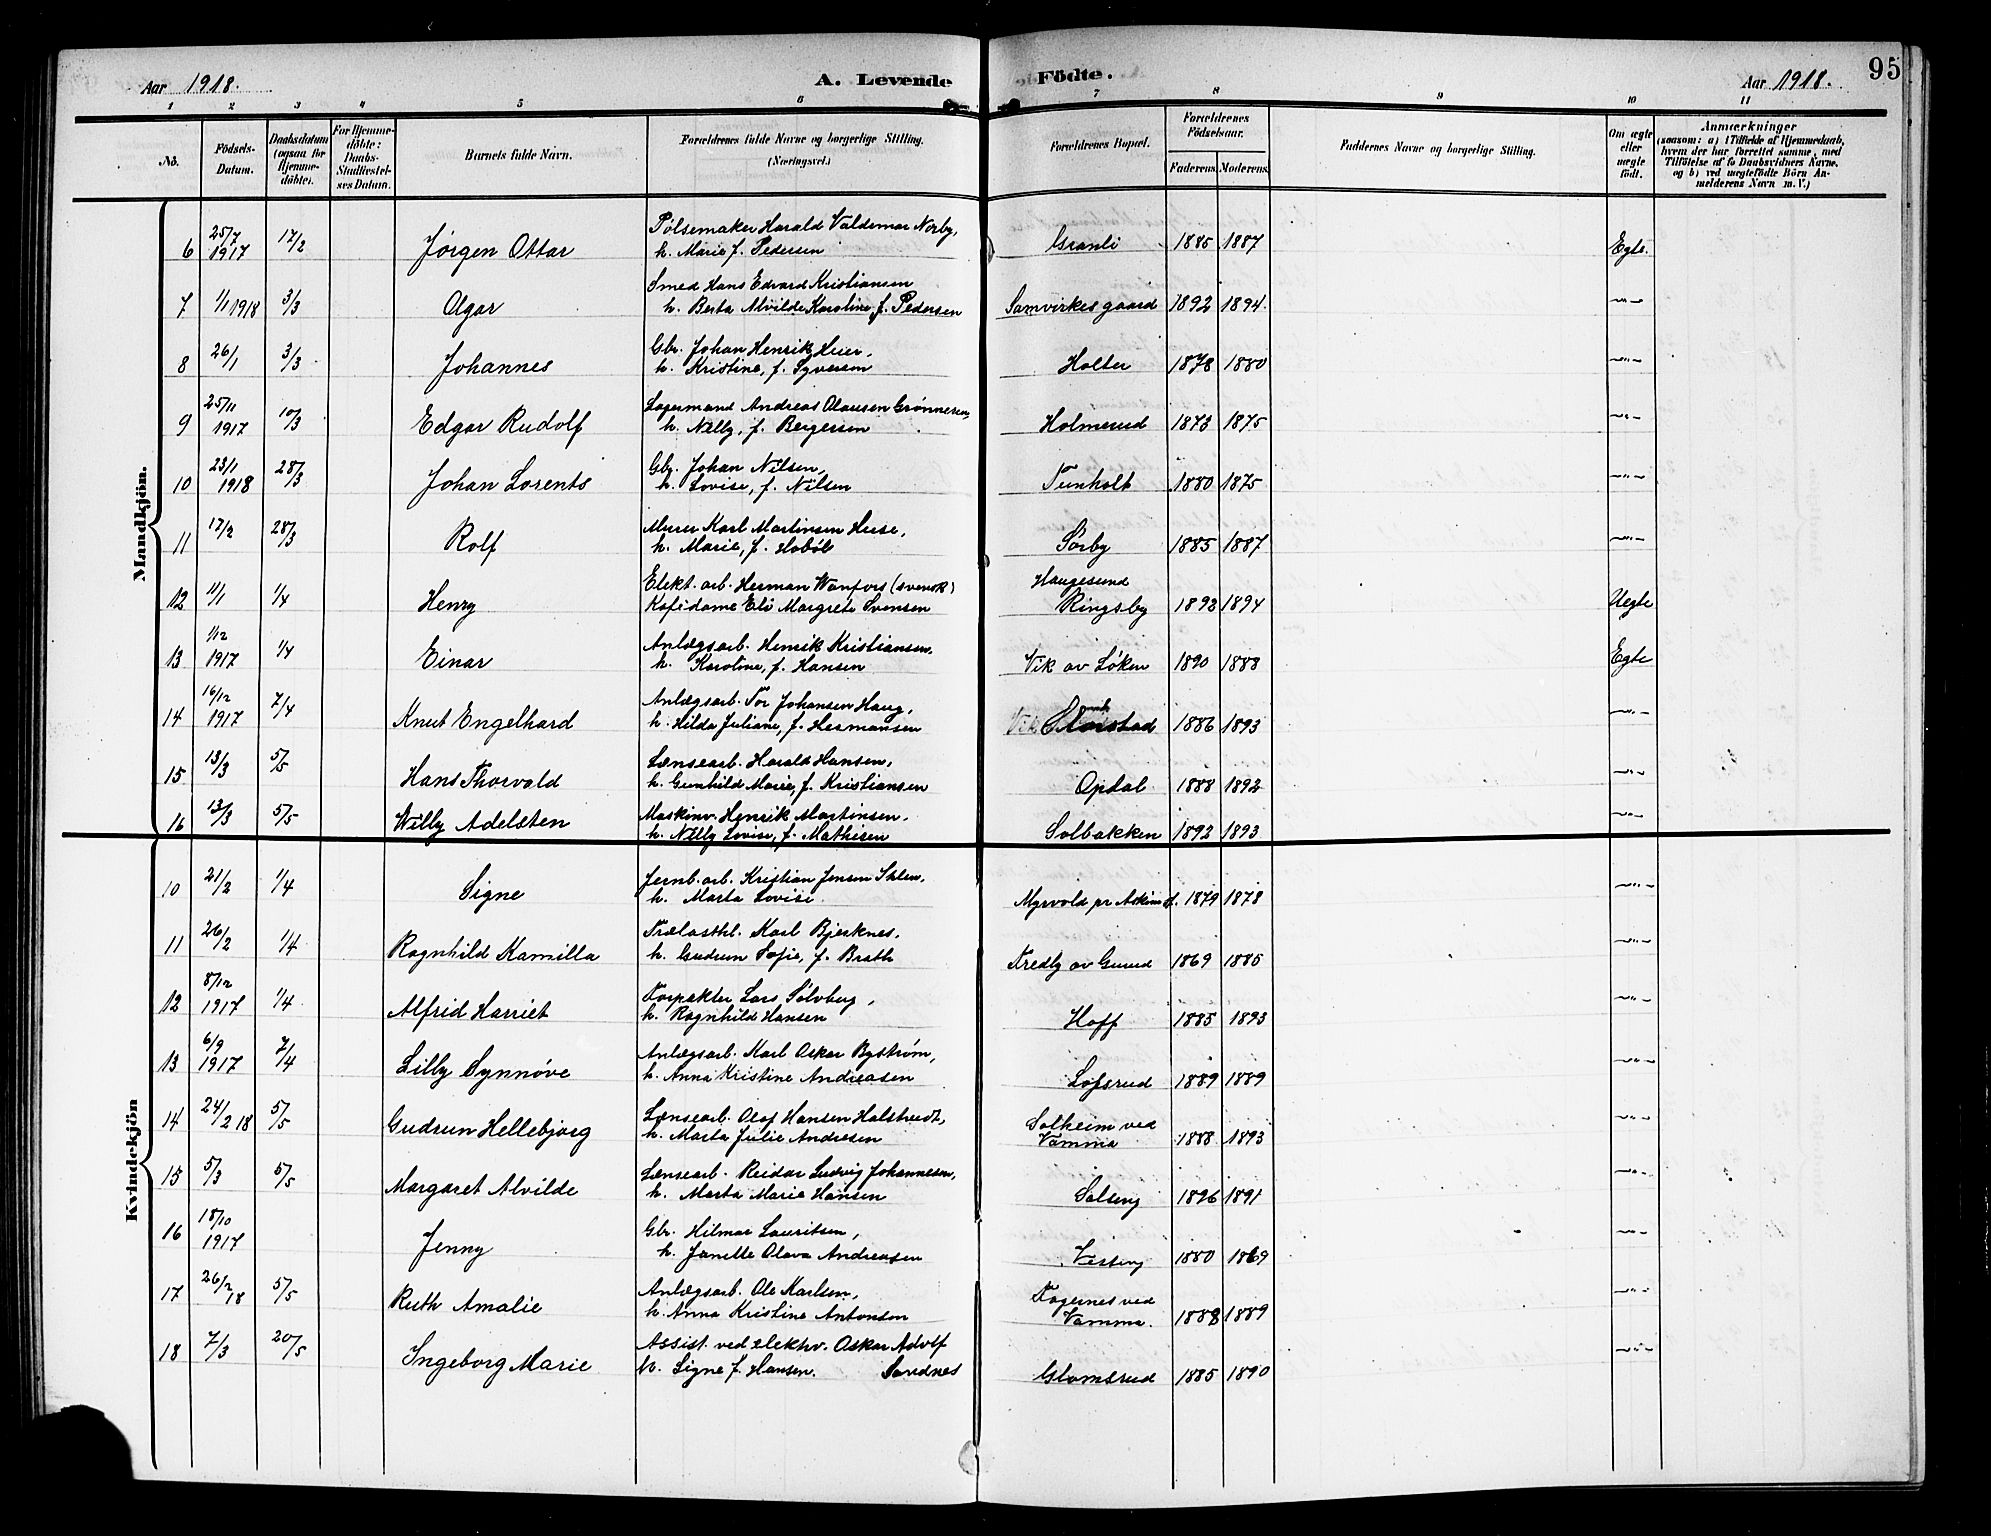 Aar 1918. A. Levende Födte. Aar 1918. 95
1 2 3 4 5 6 7 8 9 10 11
No. Födsels-Datum. Daabsdatum (ogsaa for Hjemmedöbte). For Hjemmedöbte: Daabs-Stadfæstelses Datum. Barnets fulde Navn. Forældrenes fulde Navne og borgerlige Stilling. (Næringsvei.) Forældrenes Bopæl. Forældrenes Födselsaar. Faderens. Moderens. Faddernes Navne og borgerlig Stilling. Om ægte eller uægte födt. Anmærkninger (saasom: a) i Tilfælde af Hjemmedaab, hvem der har forrettet samme, med Tilföielse af to Daabsvidners Navne, og b) ved uægtefödte Börn Anmelderens Navn m. V.)
Mandkjön.
6 25/7 1917 17/2 Jørgen Ottar Pølsemaker Harald Valdemar Norby, h. Marie f. Pedersen Granli 1885 1887 Egte.
7 1/1 1918 3/3 Agar Smed Hans Edvard Kristiansen h. Berta Alvilde Karoline, f. Pedersen Samvirkesgaard 1892 1894. -"-
8 26/1 3/3 Johannes Gbr. Johan Henrik Heier, h. Kristine, f. Syversen Holter 1878 1880 -"-
9 25/11 1917 10/3 Edgar Rudolf Lagermand Andreas Olausen Grønneren, h. Nelly, f. Bergersen Holmerud 1873 1875 -"-
10 23/1 1918 28/3 Johan Lorents Gbr. Johan Nilsen, h. Lovise, f. Nilsen Tunholt 1880 1875 -"-
11 17/2 28/3 Rolf Murer Karl Martinsen Huse, h. Marie, f. Hobøl Sørby 1885 1887 -"-
12 11/1 1/4 Henry Elekt. arb. Herman Wanfors (svensk) Kafédame Eli Margrete Svensen Haugesund Ringsby 1892 1894 Uegte
13 1/12 1917 1/4 Einar Anlægsarb. Henrik Kristiansen, h. Karoline, f. Hansen Vik av Løken 1890 1888 Egte
14 16/12 1917 7/4 Knut Engelhard Anlægsarb. Tor Johansen Haug, h. Hilda Juliane, f. Hermansen 1886 1893 -"-
15 13/3 5/5 Hans Thorvald Lænsearb. Harald Hansen, h. Gunhild Marie, f. Kristiansen Opdal 1888 1892 -"-
16 13/3 5/5 Willy Adelsten Maskinv. Henrik Martinsen, h. Nelly Lovise, f. Mathisen Solbakken 1892 1893 -"-
Kvindekjön
10 21/2 1/4 Signe Jernb. arb. Kristian Jensen Sklen, h. Marta Lovise Myrvold pr Askim st. 1879 1878 -"-
11 26/2 1/4 Ragnhild Kamilla Trælasthl. Karl Bjerknes, h. Gudrun Sofie, f. Brath Fredly av Gunrud 1869 1885 -"-
12 8/12 1917 1/4 Alfrid Harriet Forpakter Lars Sølvberg, h. Ragnhild Hansen Hoff 1885 1893 -"-
13 6/9 1917 7/4 Lilly Synnøve Anlægsarb. Karl Oskar Byström, h. Anna Kristine Andreasen Løfsrud 1889 1889 -"-
14 24/2 18 5/5 Gudrun Hellebjorg Lænsearb. Olof Hansen Halstvedt, h. Marta Julie Andresen Solheim ved Vamma 1888 1893 -"-
15 5/3 5/5 Margaret Alvilde Lænsearb. Reidar Ludvig Johannesen, h. Marta Marie Hansen Soleng 1896 1891 -"-
16 18/10 1917 Jenny Gbr. Hilmar Lauritsen, h. Janette Olava Andreasen Vesteng 1880 1869 -"-
17 26/2 18 5/5 Ruth Amalie Anlægsarb. Ole Karlsen, h. Anna Kristine Antonsen Fagernes ved Vamma. 1888 1889 -"-
18 7/3 20/5 Ingeborg Marie Assist. ved elektv. Oskar Adolf Sandnes h. Signe f. Hansen. Glomsrud 1885 1890 -"-